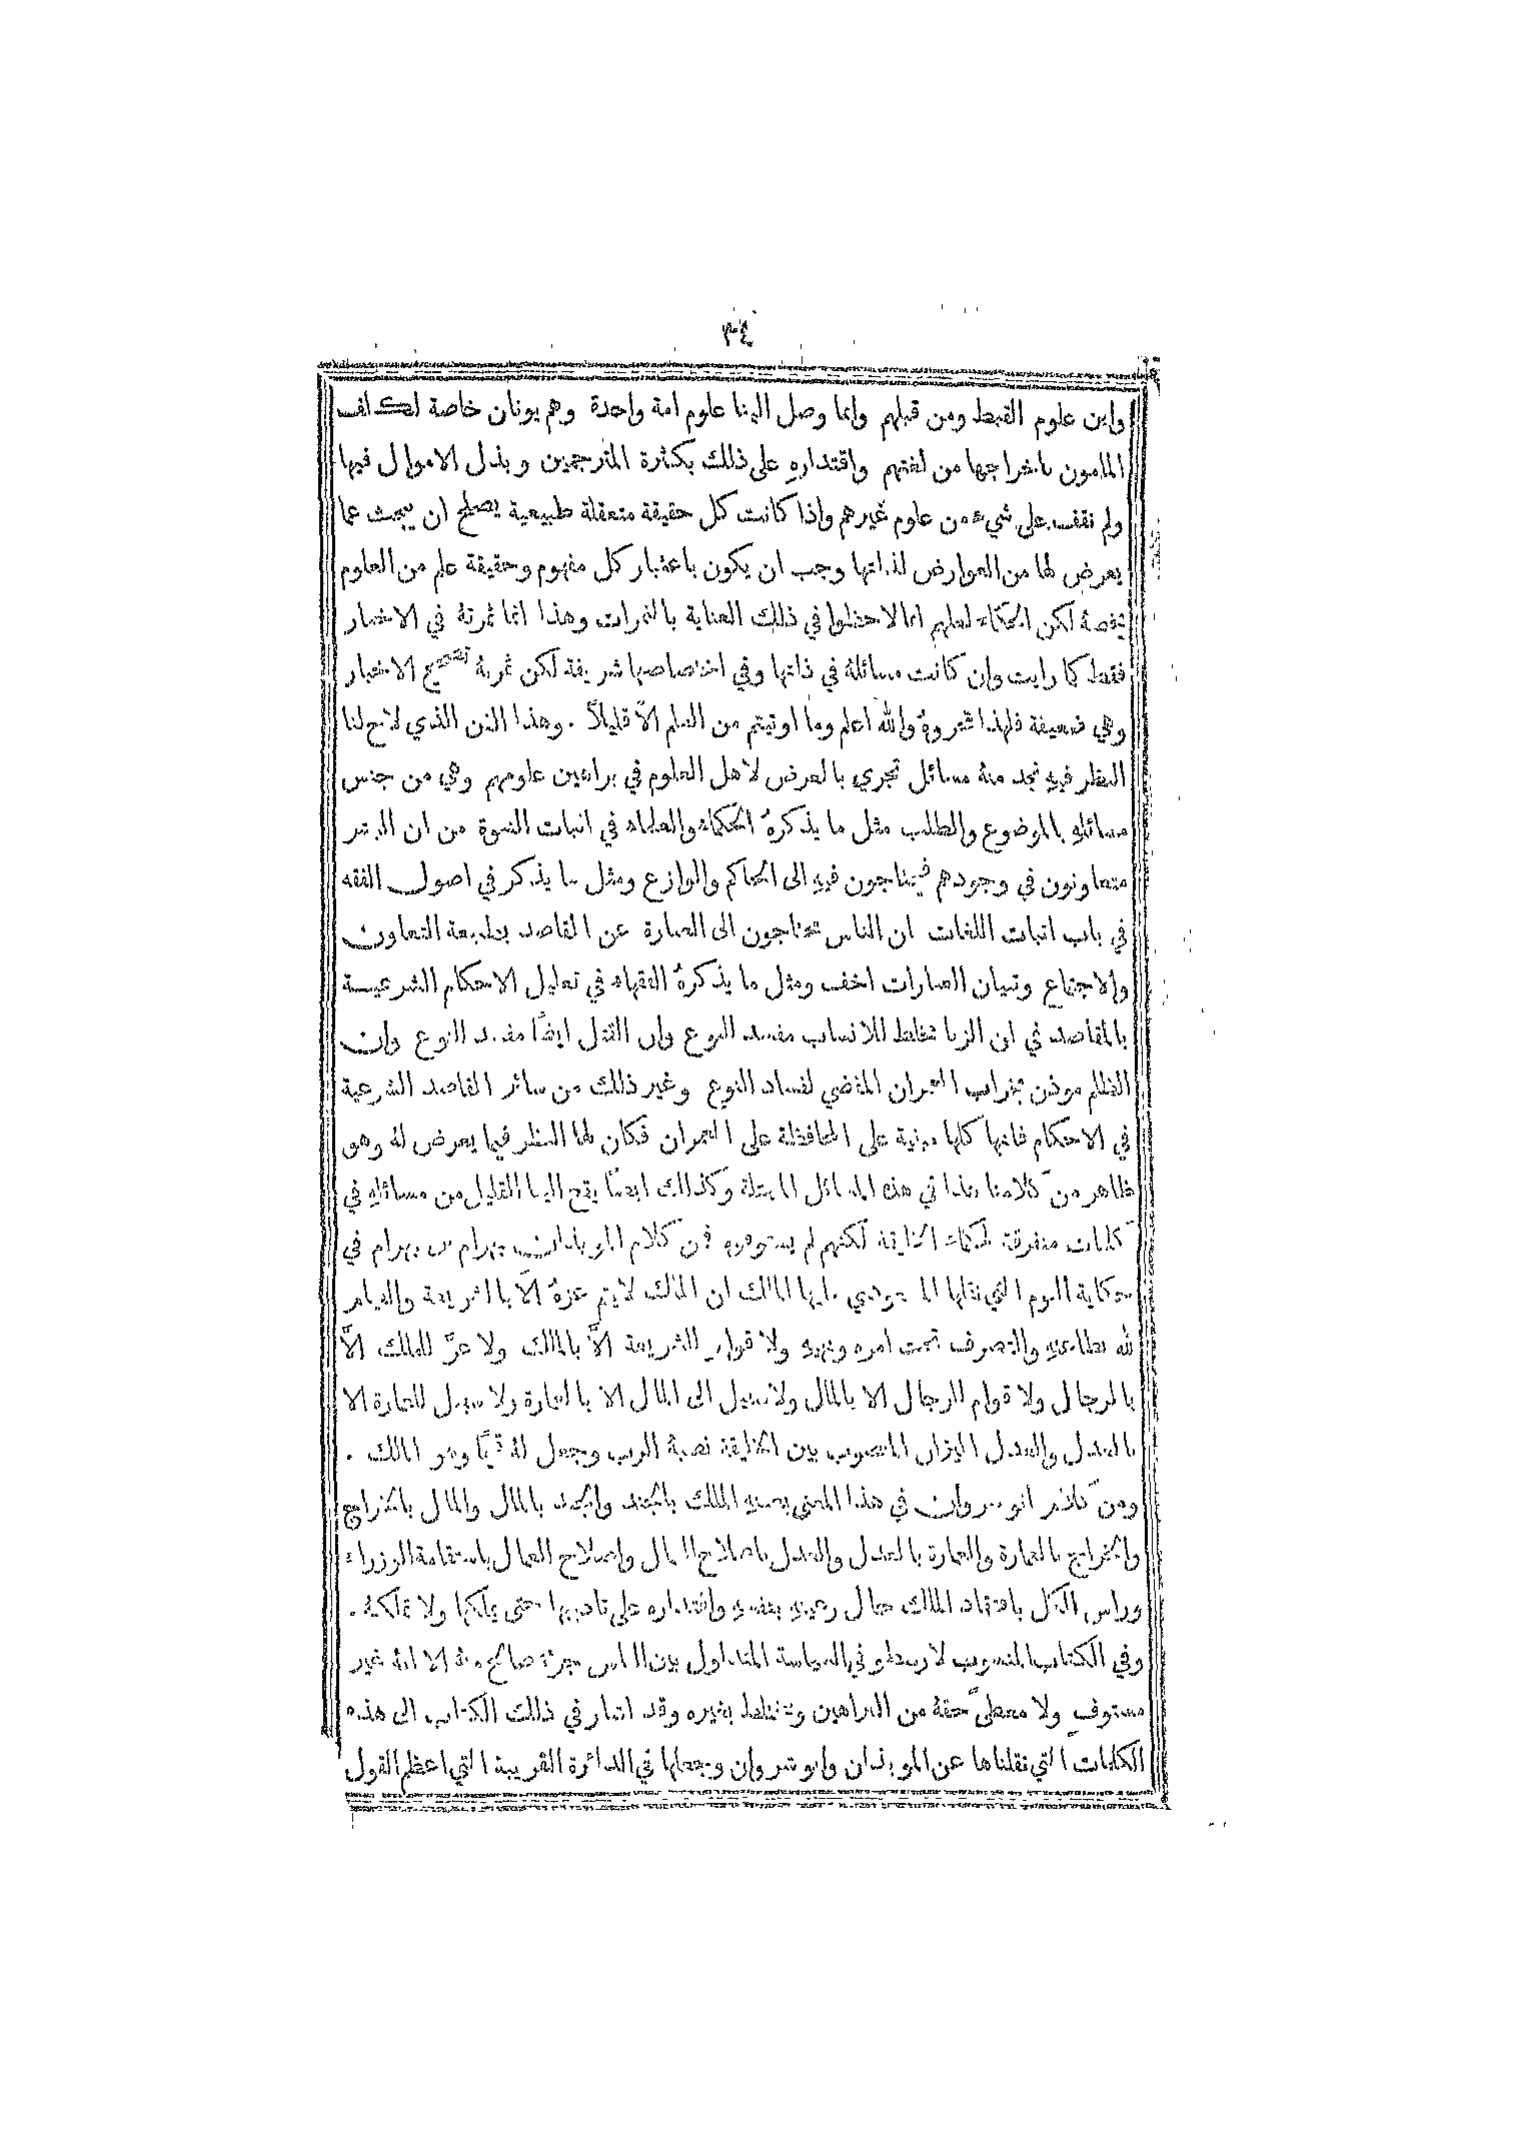 ٣٤
واين علوم القبط ومن قبلهم وانما وصل الينا علوم امة واحدة وهم يونان خاصة لكلف
المامون باخراجها من لغتهم واقتدارهِ على ذلك بكثرة المترجمين وبذل الاموال فيها
ولم نقف على شيءٍ من علوم غيرهم واذا كانت كل حقيقة متعقلة طبيعية يصلح ان يبحث عما
يعرض لها من العوارض لذاتها وجب ان يكون باعتبار كل مفهوم وحقيقة علم من العلوم
يخصهُ لكن الحكماء لعلهم انما لاحظوا في ذلك العناية بالثمرات وهذا انما ثمرتهُ في الاخبار
فقط كما رايت وان كانت مسائلهُ في ذاتها وفي اختصاصها شريفة لكن ثمرتهُ تصحيح الاخبار
وهي ضعيفة فلهذا هجروهُ والله اعلم وما اوتيتم من العلم الَّا قليلاً . وهذا الفن الذي لاح لنا
النظر فيهِ نجد منهُ مسائل تجري بالعرض لاهل العلوم في براهين علومهم وهي من جنس
مسائلهِ بالموضوع والطلب مثل ما يذكرهُ الحكماءُ والعلماء في اثبات النبوة من ان البشر
متعاونون في وجودهم فيحتاجون فيهِ الى الحاكم والوازع ومثل ما يذكر في اصول الفقه
في باب اثبات اللغات ان الناس محتاجون الى العبارة عن المقاصد بطبيعة التعاون
والاجتماع وتبيان العبارات اخف ومثل ما يذكرهُ الفقهاء في تعليل الاحكام الشرعية
بالمقاصد في ان الزنا مخلط للانساب مفسد للنوع وان القتل ايضًا مفسد للنوع وان
الظلم موذن بخراب العمران المفضي لفساد النوع وغير ذلك من سائر المقاصد الشرعية
في الاحكام فانها كلها مبنية على المحافظة على العمران فكان لها النظر فيما يعرض لهُ وهو
ظاهر من كلامنا هذا في هذه المسائل الممثلة وكذلك ايضًا يقع الينا القليل من مسائلهِ في
كلمات متفرقة لحكماء الخليقة لكنهم لم يستوفوه فمن كلام الموبذان بهرام بن بهرام في
حكاية البوم التي نقلها المسعودي ايها الملك ان الملك لا يتم عزهُ الَّا بالشريعة والقيام
لله بطاعتهِ والتصرف تحت امره ونهيهِ ولا قوام للشريعة الَّا بالملك ولا عزَّ للملك الَّا
بالرجال ولا قوام للرجال الا بالمال ولا سبيل الى المال الا بالعمارة ولا سبيل للعمارة الا
بالعدل والعدل الميزان المنصوب بين الخليقة نصبهُ الرب وجعل لهُ قيمًا وهو الملك .
ومن كلام انوشروان في هذا المعنى بعينهِ الملك بالجند والجند بالمال والمال بالخراج
والخراج بالعمارة والعمارة بالعدل والعدل باصلاح العمال واصلاح العمال باستقامة الوزراء
وراس الكل بافتقاد الملك حال رعيتهِ بنفسهِ واقتداره على تاديبها حتى يملكها ولا تملكهُ .
وفي الكتاب المنسوب لارسطو في السياسة المتداول بين الناس جزءٌ صالح منهُ الا انهُ غير
مستوفٍ ولا معطىً حقهُ من البراهين ومختلط بغيره وقد اشار في ذلك الكتاب الى هذه
الكلمات التي نقلناها عن الموبذان وانوشروان وجعلها في الدائرة القريبة التي اعظم القول